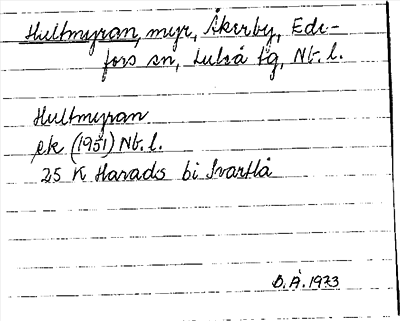 Hultmyran, myr, Åkerby, Ede-
fors sn, Luleå tg, Nb. l.
Hultmyran
ek (1951) Nb. l.
25 K Harads bi Svartlå
B.Å. 1973